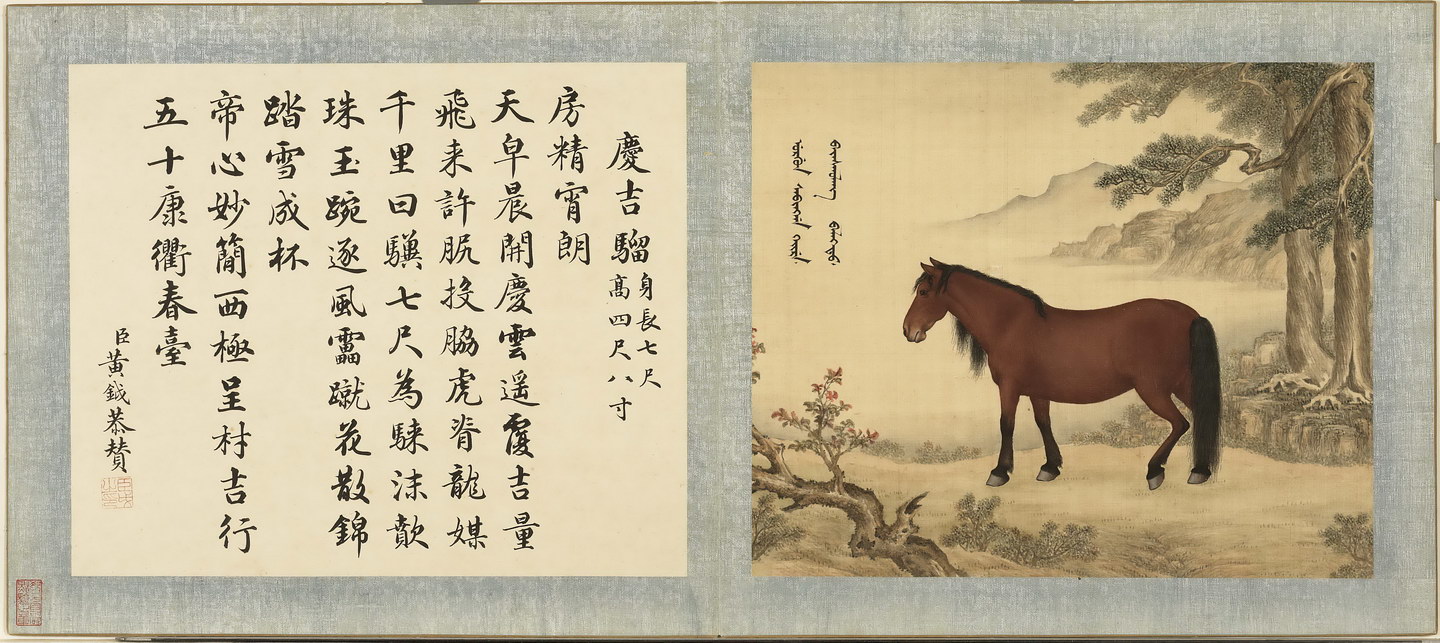 慶吉騮
身長七尺
高四尺八寸
房精霄朗
天皁晨開慶雲遥覆吉量
飛来許投脇虎脊龍媒
千里曰驥七尺為騋沫歕
珠玉踠逐風靁蹴花散錦
踏雪成杯
帝心妙簡西極呈材吉行
五十康衢春臺
臣黃鉞恭贊